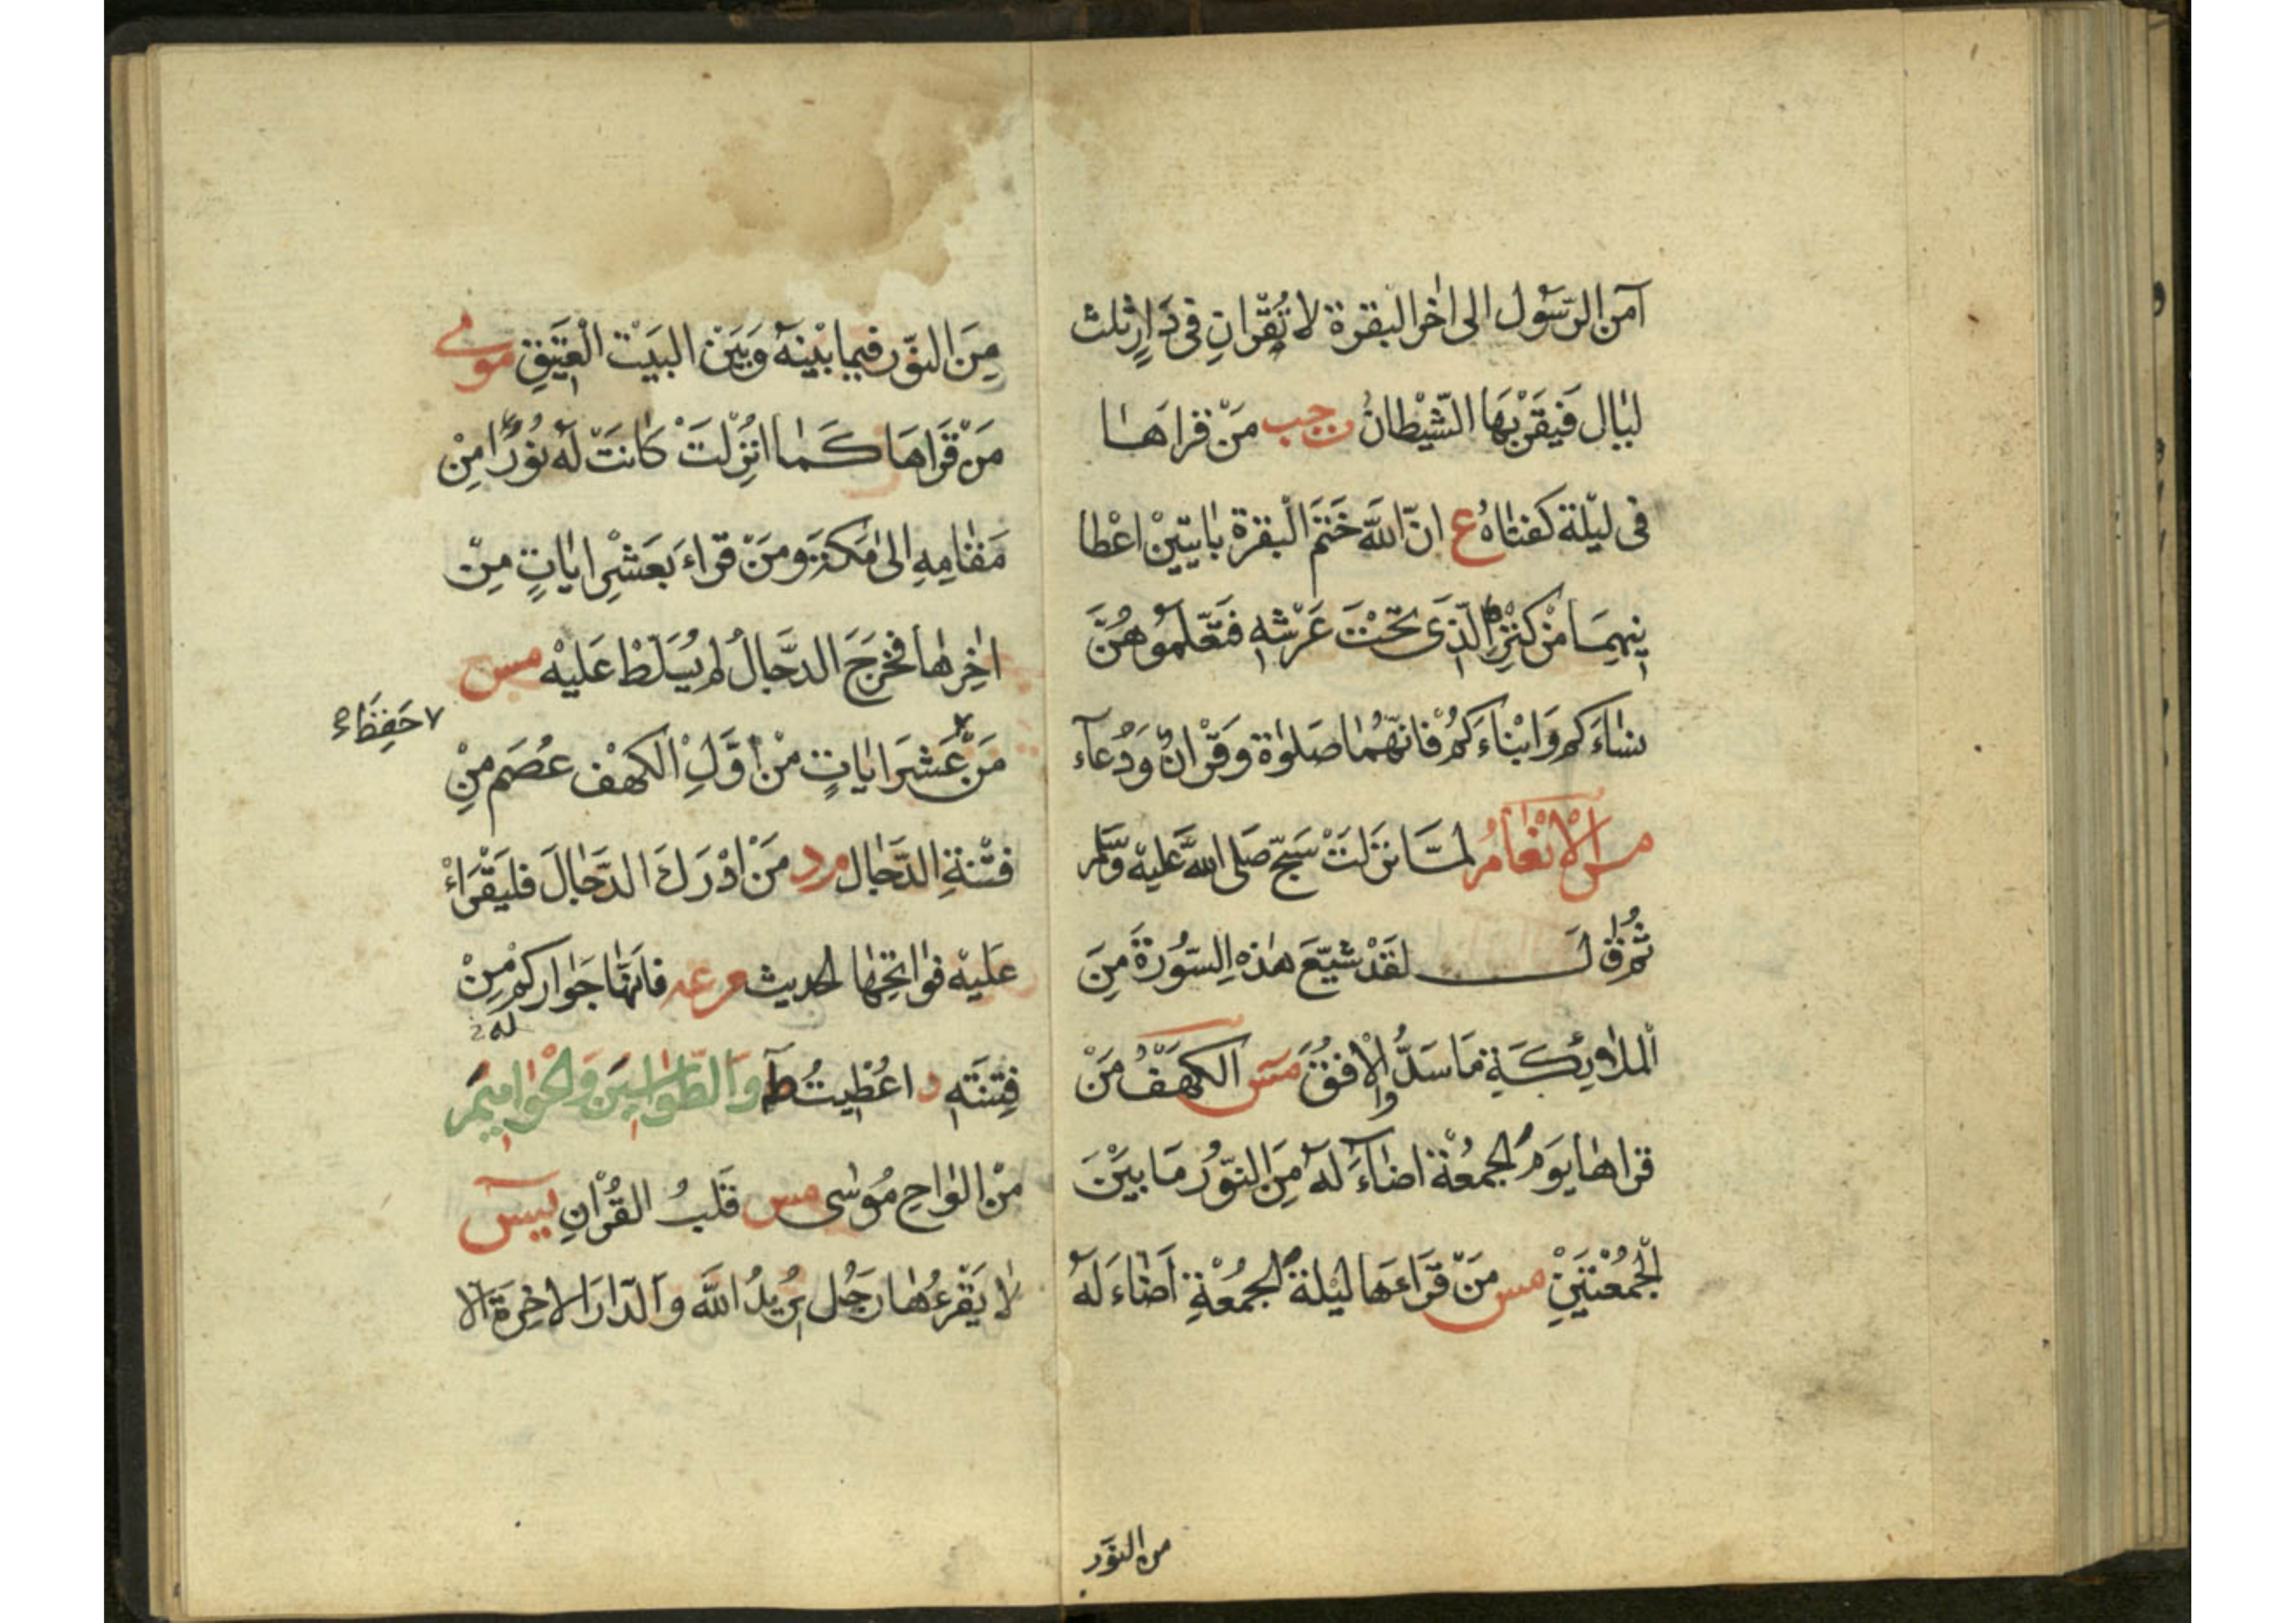 آمن الرّسول الى اٰخر البقرة لا تُقْرانِ فى دَارٍ ثلث
ليال فَيَقْرَبُهَا الشّيْطانُ ج حب مَنْ قراهَا
فى ليْلة كفتاهُ ع انّ اللّٰهَ خَتَمَ الْبقرة باٰيتَيْنْ اعْطا
نِيهِمَا مْن كنْزِهِ الّذى تَحْتَ عَرْشهِ فتعَّلمُوهُنَّ
نسَاءَكم وَابْناءَكُمْ فانّهُما صَلوٰة وَقرْانٌ وَدُعآء
مس الْانْعَامُ لمّا نزَلَتْ سَبّحَ صَلى اللّٰه عَليْه وَسَّلم
ثُمّ قٰالَ لقَدْ شيّعَ هٰذِهِ السّوُرَة مِنَ
الْملاۤئِكَةِ مَا سَدُّوا الْافقَ مس الكهَفُ مَنْ
قراهَا يوَمَ الجمعُة اضَاۤءَ لهُ مِنَ النّوُر مَا بيَنْ
الْجُمُعْتَيْنِ مس مَنْ قَرَاءهَا ليْلة الجُمُعْةِ اَضَاءَ لهُ
من النوّر
مِنَ النّوُر فيمابيْنهُ وَبَيَنْ البيَتْ العتِيَقِ مو مى
مَنْ قَرَاهَا كَما انُزْلَتْ كانَتْ لَهُ نوُرًا مِنْ
مَقامِهِ الىٰ مَكةَ وَمَنْ قراءَ بعَشْرِ اٰياتٍ مِنْ
اٰخِرهَا فخرَجَ الدجَّالُ لم يُسَلّطْ عَليْه مس
٧ حَفِظَ
مَنْ عَشرَ اٰياتٍ منْ اوَّلِ الكهْف عُصَمَ مِنْ
فتْنةِ الدّجَال م د مَنْ ادْرَكَ الدّجَالَ فليَقْرَاءْ
عَليْه فوَاتحِهَا الحديث م عه فانَّهَا جَوَاركم مِنْ
فِتنَتهِ د اعُطِيتُ طٰهٰ وَالطّوَاسِينَ وَالْحوَامِيمَ
له
مْن الوَاح مُوسٰى مس قَلبُ القُرْاٰنِ يسٓ
لا يَقْرَءُهَا رَجُل يرُيدُ اللّٰهَ وَالدّارَ الاخِرَة الا